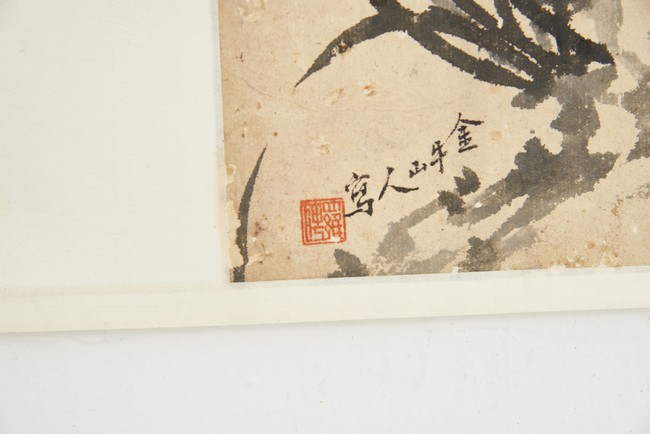 金牛山人寫